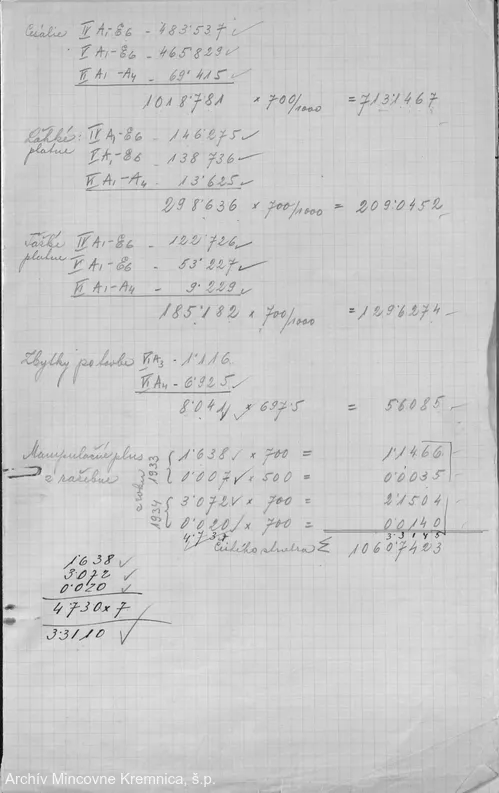 Cisálie IV A1-E6 - 483·537 ✓
V A1-E6 - 465·829 ✓
VI A1-A4 - 69·415 ✓
1018·781 × 700/1000 = 713·1467
Ľahké: IV A1-E6 - 146·275 ✓
platne V A1-E6 - 138·736 ✓
VI A1-A4 - 13·625 ✓
298·636 × 700/1000 = 209·0452
Ťažké IV A1-E6 - 122·726 ✓
platne V A1-E6 - 53·227 ✓
VI A1-A4 - 9·229 ✓
185·182 × 700/1000 = 129·6274
Zbytky po lorbe VI A3 - 1·116
VI A4 - 6·925 ✓
8·041 ✓ × 697·5 = 5·6085
Manipulačné plus z roku 1933 { 1·638 ✓ × 700 = 1·1466
z razebne 0·007 ✓ × 500 = 0·0035
1934 { 3·072 ✓ × 700 = 2·1504
0·020 ✓ × 700 = 0·0140
4·737 3·3145
Čistého striebra Σ 1060·7423
1·638 ✓
3·072 ✓
0·020 ✓
4·730 × 7
3·3110 ✓
Archív Mincovne Kremnica, š.p.